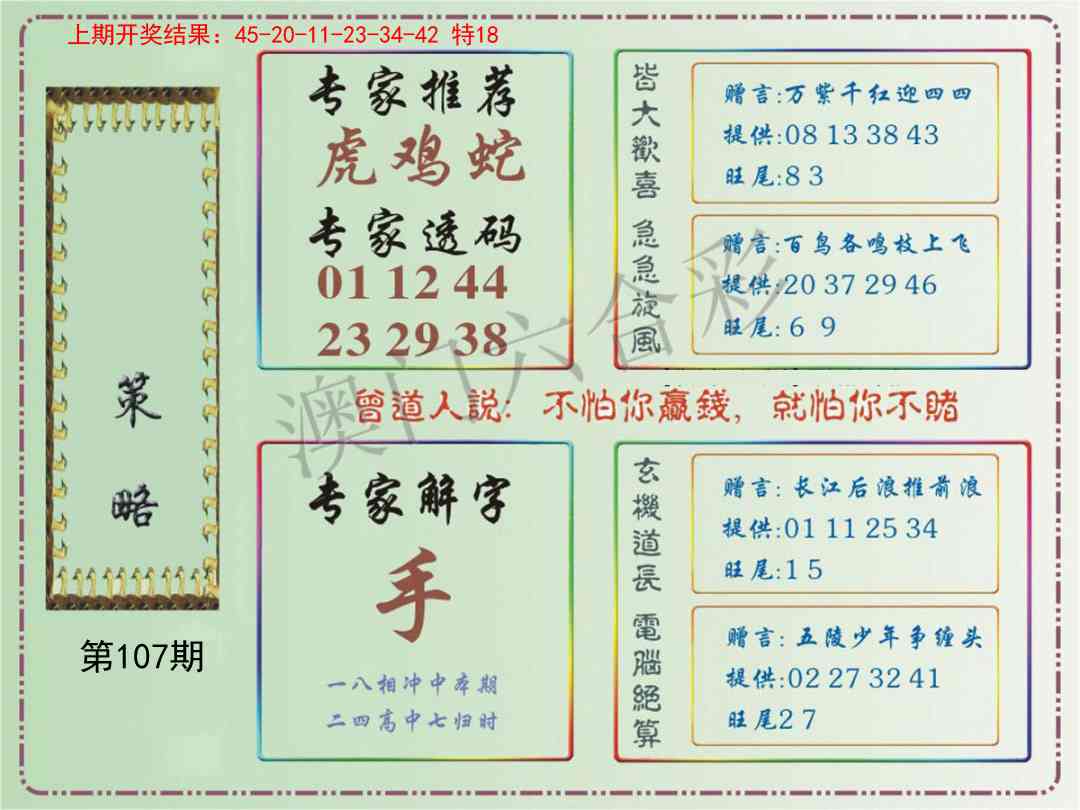 上期开奖结果：45-20-11-23-34-42 特18
策略
第107期
专家推荐
虎鸡蛇
专家透码
01 12 44
23 29 38
皆大歡喜
赠言:万紫千红迎四四
提供:08 13 38 43
旺尾:8 3
急急旋風
赠言:百鸟各鸣枝上飞
提供:20 37 29 46
旺尾:6 9
澳门六合彩
曾道人説：不怕你贏錢，就怕你不賭
专家解字
手
一八相冲中本期
二四高中七归时
玄機道長
赠言：长江后浪推前浪
提供:01 11 25 34
旺尾:1 5
電腦絕算
赠言：五陵少年争缠头
提供:02 27 32 41
旺尾2 7